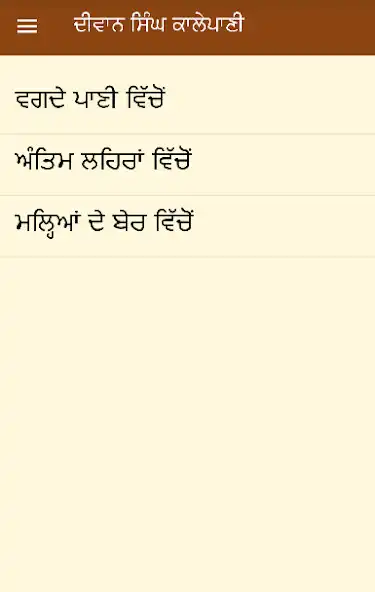 ਦੀਵਾਨ ਸਿੰਘ ਕਾਲੇਪਾਣੀ
ਵਗਦੇ ਪਾਣੀ ਵਿੱਚੋਂ
ਅੰਤਿਮ ਲਹਿਰਾਂ ਵਿੱਚੋਂ
ਮਲ੍ਹਿਆਂ ਦੇ ਬੇਰ ਵਿੱਚੋਂ